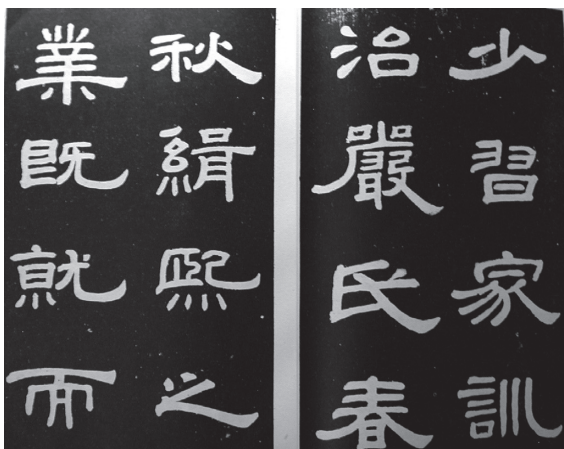 少習家訓
治嚴氏春
秋緝熙之
業既就而